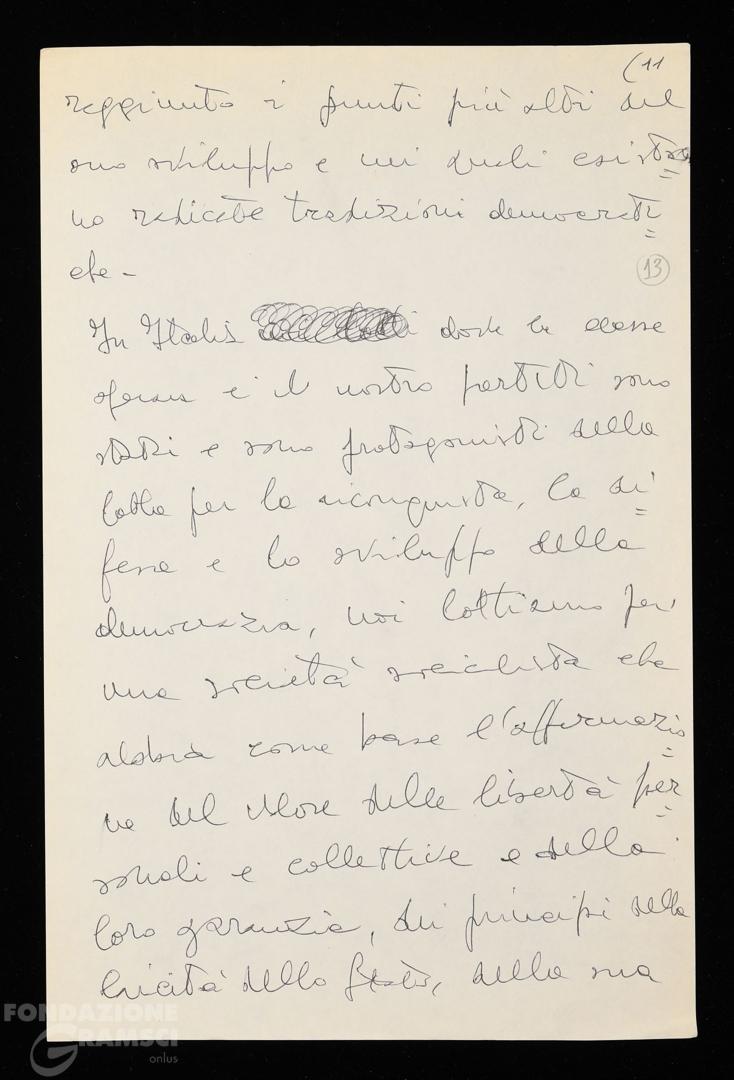 (11
raggiunto i punti più alti del
suo sviluppo e nei quali esisto
no radicate tradizioni democrati
che -
13
In Italia dove la classe
operaia e il nostro partito sono
stati e sono protagonisti della
lotta per la riconquista, la di
fesa e lo sviluppo della
democrazia, noi lottiamo per
una società socialista che
abbia come base l'affermazio
ne del valore delle libertà per
sonali e collettive e della
loro garanzia, dei principi della
laicità dello Stato, della sua
FONDAZIONE
GRAMSCI
onlus